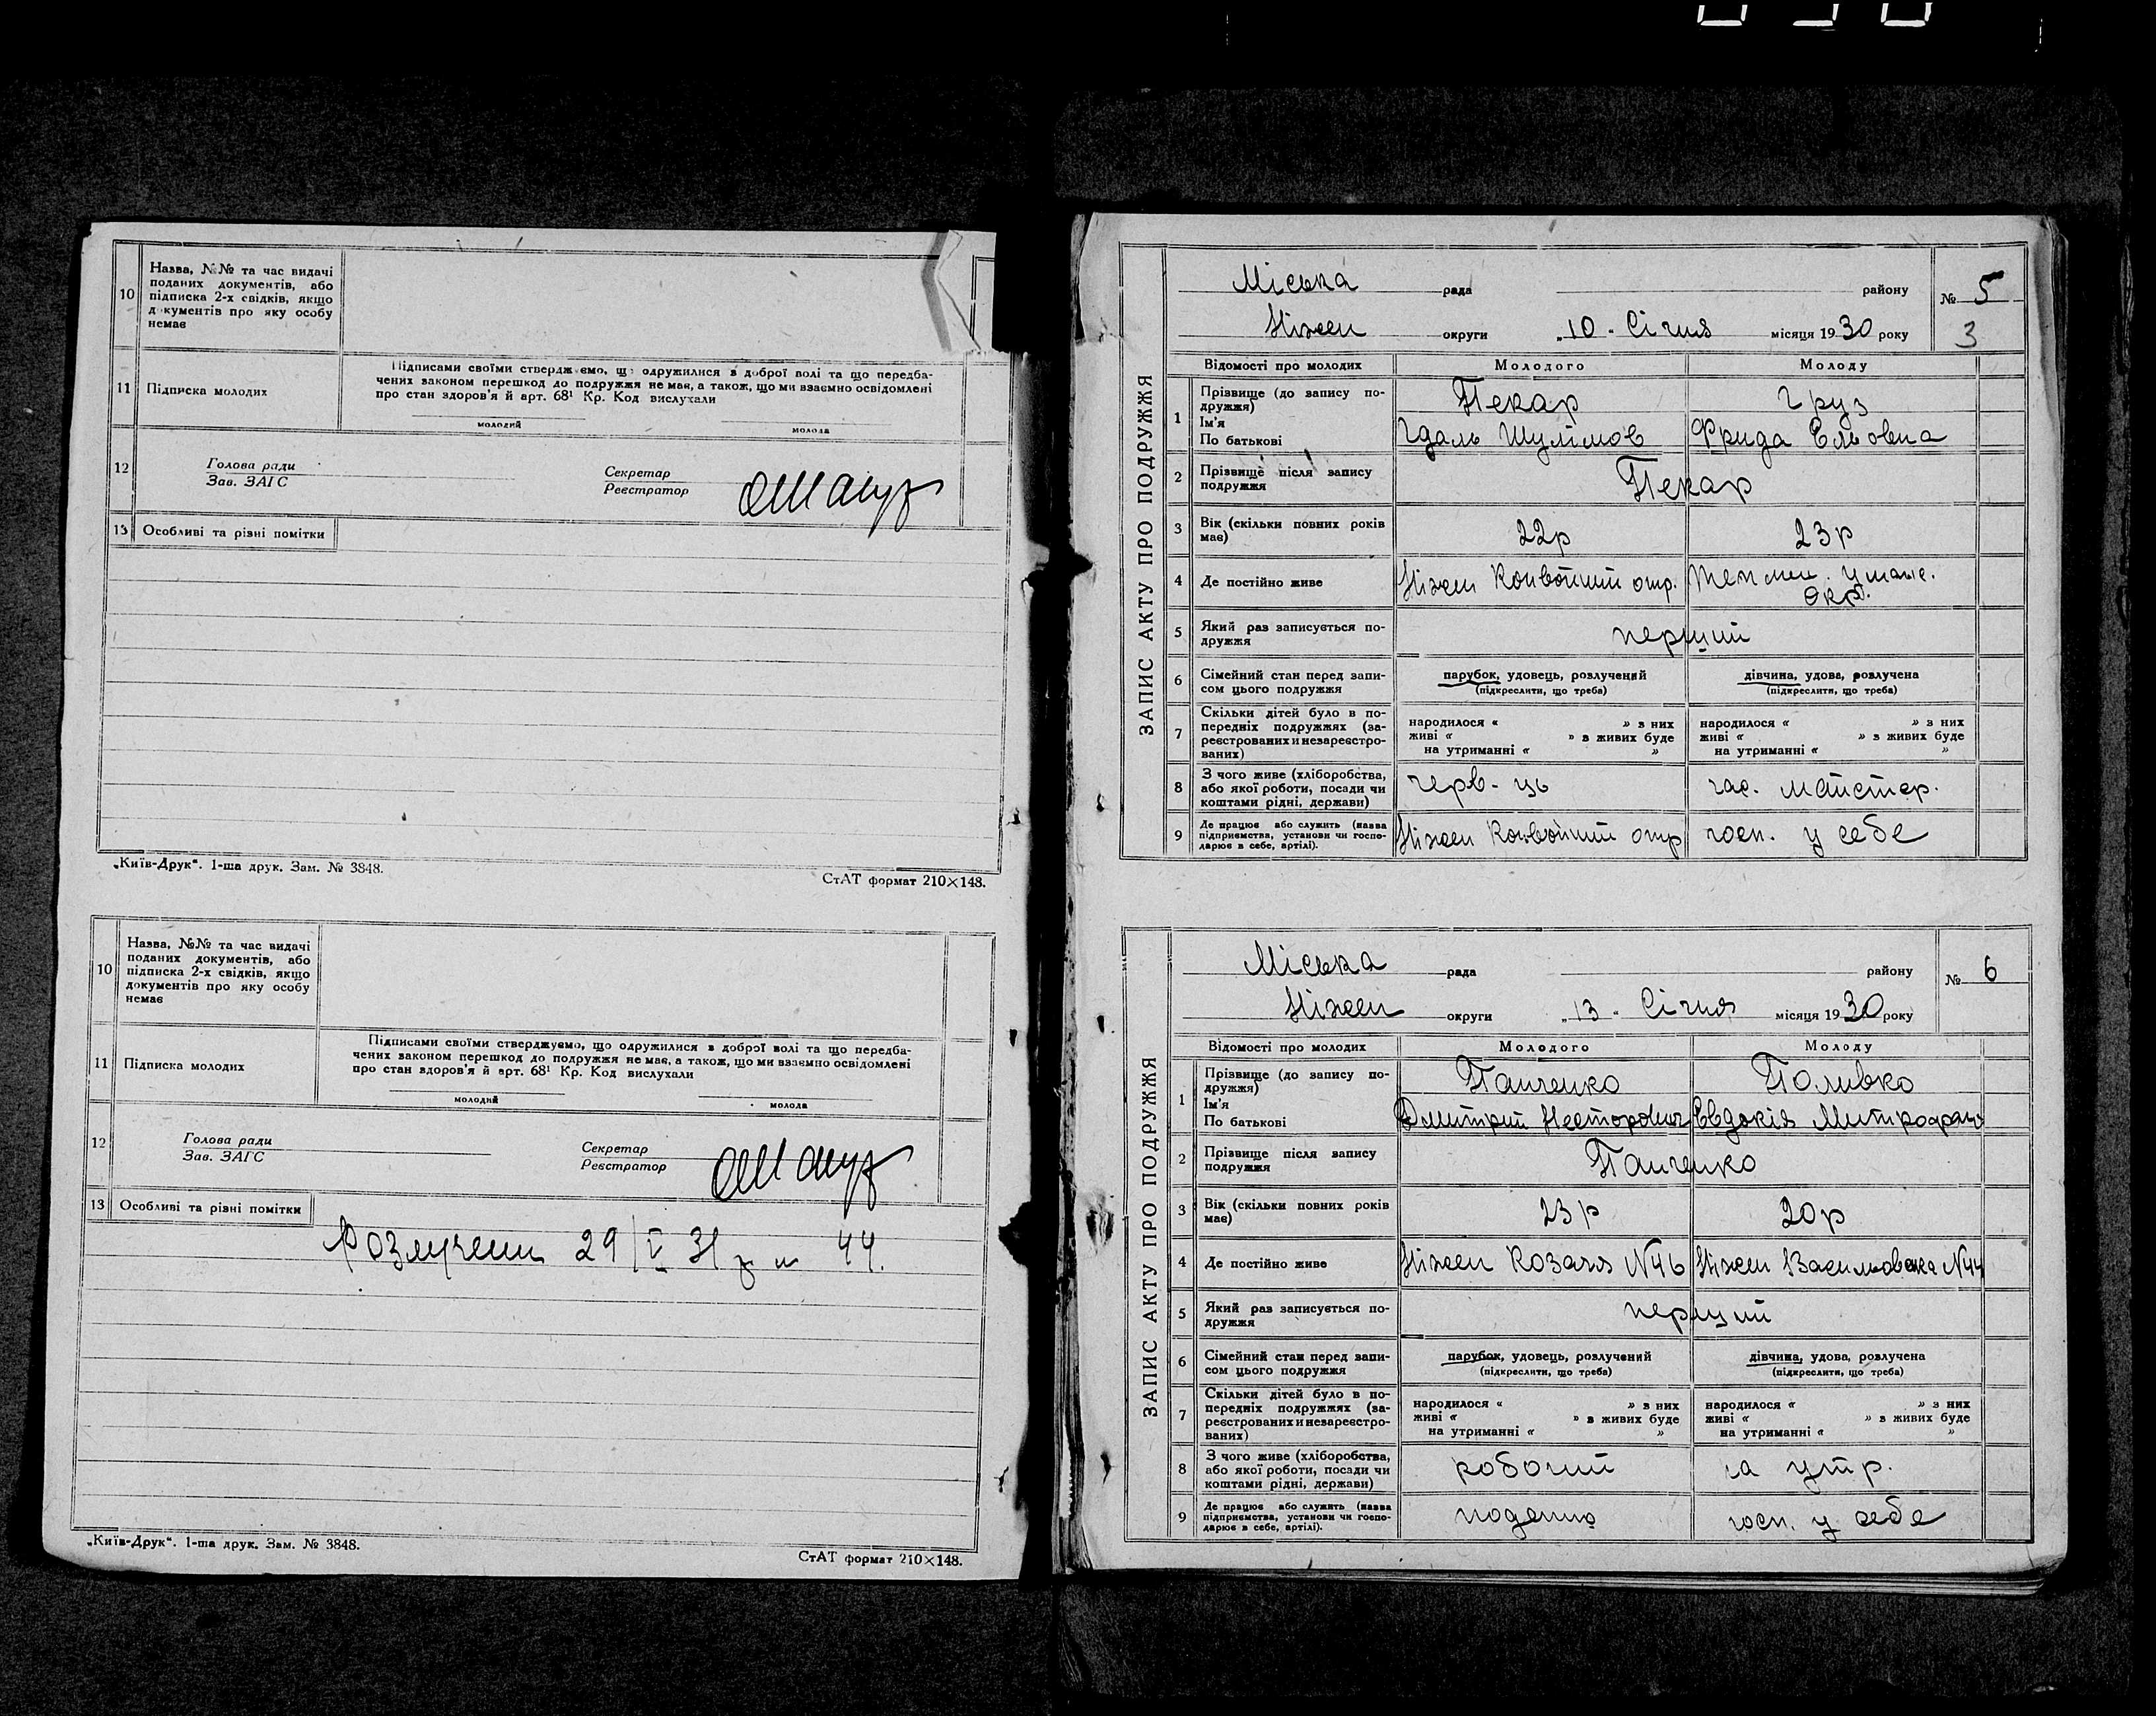 10 Назва, №№ та час видачі
поданих документів, або
підписка 2-х свідків, якщо
документів про яку особу
немає
11 Підписка молодих
Підписами своїми стверджуємо, що одружилися з доброї волі та що передба-
чених законом перешкод до подружжя не має, а також, що ми взаємно освідомлені
про стан здоров'я й арт. 68¹ Кр. Код вислухали
молодий молода
12 Голова ради Секретар
Зав. ЗАГС Реєстратор
13 Особливі та різні помітки
„Київ-Друк“. 1-ша друк. Зам. № 3848. СтАТ формат 210×148.
10 Назва, №№ та час видачі
поданих документів, або
підписка 2-х свідків, якщо
документів про яку особу
немає
11 Підписка молодих
Підписами своїми стверджуємо, що одружилися з доброї волі та що передба-
чених законом перешкод до подружжя не має, а також, що ми взаємно освідомлені
про стан здоров'я й арт. 68¹ Кр. Код вислухали
молодий молода
12 Голова ради Секретар
Зав. ЗАГС Реєстратор
13 Особливі та різні помітки
Розлучени 29/V 31 44.
„Київ-Друк“. 1-ша друк. Зам. № 3848. СтАТ формат 210×148.
ЗАПИС АКТУ ПРО ПОДРУЖЖЯ
Міська рада району № 5
Ніжен округи „10" Січня місяця 1930 року 3
Відомості про молодих Молодого Молоду
1 Прізвище (до запису по-
дружжя) Пекар Груз
Ім'я
По батькові Гдаль Шулімов Фрида Ельовна
2 Прізвище після запису
подружжя Пекар
3 Вік (скільки повних років
має) 22р 23р
4 Де постійно живе Ніжен Конвойний отр. Уманс.
Окр.
5 Який раз записується по-
дружжя перший
6 Сімейний стан перед запи-
сом цього подружжя парубок, удовець, розлучений дівчина, удова, розлучена
(підкреслити, що треба) (підкреслити, що треба)
7 Скільки дітей було в по-
передніх подружжях (за-
реєстрованих и незареєстро-
ваних)
народилося « » з них народилося « » з них
живі « » в живих буде живі « » в живих буде
на утриманні « » на утриманні « »
8 З чого живе (хліборобства,
або якої роботи, посади чи
коштами рідні, держави) черв-ць майстер.
9 Де працює або служить (назва
підприємства, установи чи госпо-
дарює в себе, артілі). Ніжен Конвойний отр госп. у себе
ЗАПИС АКТУ ПРО ПОДРУЖЖЯ
Міська рада району № 6
Ніжен округи „13" Січня місяця 1930 року
Відомості про молодих Молодого Молоду
1 Прізвище (до запису по-
дружжя) Панченко Поливко
Ім'я
По батькові Дмитрий Несторович Евдокія Митрофан
2 Прізвище після запису
подружжя Панченко
3 Вік (скільки повних років
має) 23р 20р
4 Де постійно живе Ніжен Козача N46 Ніжен Васильовска N44
5 Який раз записується по-
дружжя перший
6 Сімейний стан перед запи-
сом цього подружжя парубок, удовець, розлучений дівчина, удова, розлучена
(підкреслити, що треба) (підкреслити, що треба)
7 Скільки дітей було в по-
передніх подружжях (за-
реєстрованих и незареєстро-
ваних)
народилося « » з них народилося « » з них
живі « » в живих буде живі « » в живих буде
на утриманні « » на утриманні « »
8 З чого живе (хліборобства,
або якої роботи, посади чи
коштами рідні, держави) робочий на утр.
9 Де працює або служить (назва
підприємства, установи чи госпо-
дарює в себе, артілі). поденно госп. у себе